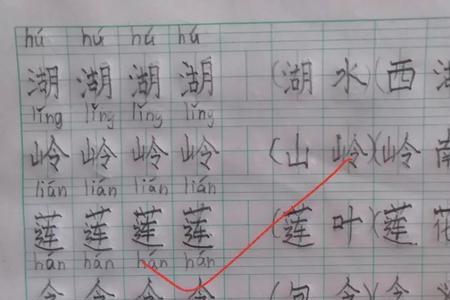 hú hú hú hú
湖 湖 湖 湖 (湖 水)(西 湖
lǐng lǐng lǐng lǐng
岭 岭 岭 岭 (山 岭)(岭 南
lián lián lián lián
莲 莲 莲 莲 (莲 叶)(莲 花
hán hán hán hán
含 含 含 含